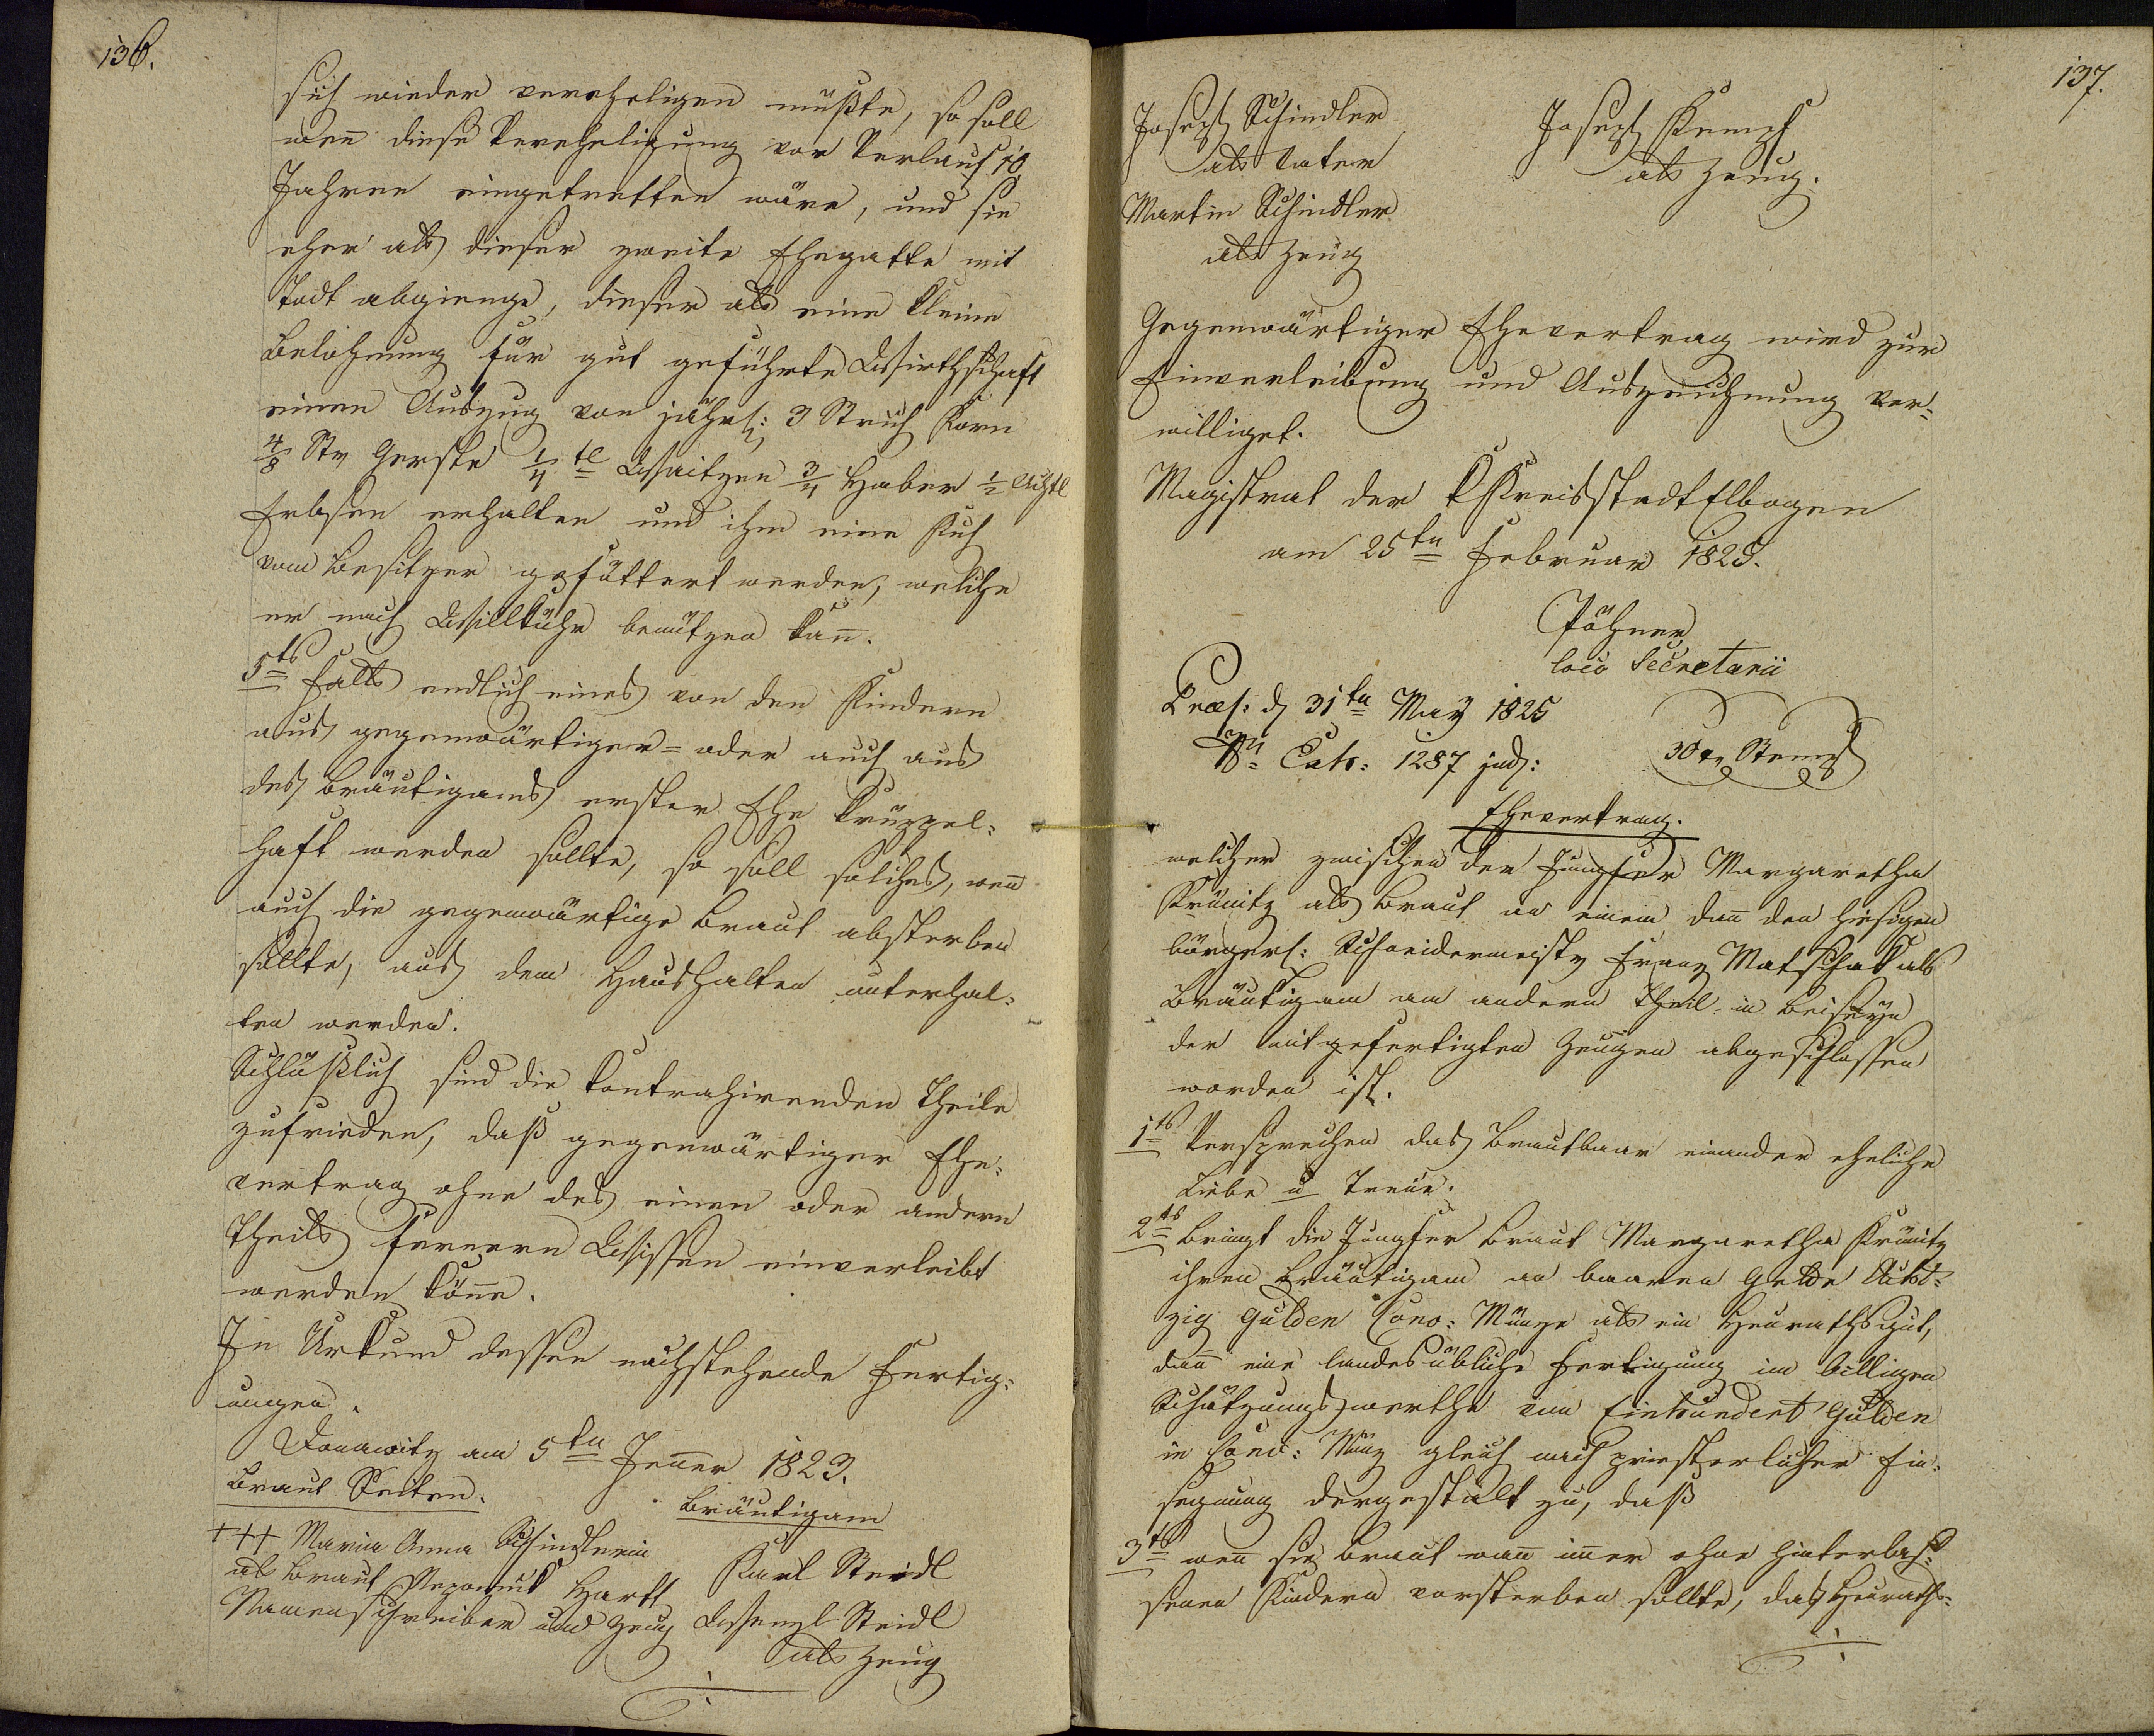 136.
sich wieder verehligen müßte, so soll
wen̅ diese Verehligung vor Verlauf 10
Jahren eingetretten wäre, und sie
eher als dieser zweite Ehegatte mit
Todt abgienge, dieser als eine kleine
Belohnung für gut geführte Wirthschaft
einen Auszug von jährl: 3 Strich Korn
4/8 Str Gerste 1/4 tl Waitzen 3/4 Haber 1/2 Achtl
Erbsen erhalten und ihm eine Kuh
vom Besitzer gefüttert werden, welche
er nach Willkühr benützen kan̅.
5ts Falls endlich eines von den Kindern
aus gegenwärtiger= oder auch aus
des Bräutigams erster Ehe krüppel=
haft werden sollte, so soll solches, wen̅
auch die gegenwärtige Braut absterben
sollte, aus dem Haushalten unterhal=
ten werden.
Schlüßlich sind die kontrahirenden Theile
zufrieden, daß gegenwärtiger Ehe=
vertrag ohne des einen oder andern
Theils fernern Wissen einverleibt
werden kön̅e.
In Urkund dessen nachstehende Fertig=
ungen.
Donawitz am 5ten Jen̅er 1823.
Braut Seiten. Bräutigam
+++ Maria Anna Schindlerin
als Braut Nepomuk Hartl Karl Steidl
Namensschreiber und Zeug Wenzl Steidl
als Zeug
137.
Joseph Schindler Joseph Kempf
als Vater als Zeug.
Martin Schindler
als Zeug
Gegenwärtiger Ehevertrag wird zur
Einverleibung und Aufzeichnung ver=
williget.
Magistrat der K Kreisstadt Elbogen
am 25ten Februar 1825.
Pöhner
loco Secretarii
Præs: d 31ten May 1825
Nr Exh: 1287 jud: 30 xr Stempl
Ehevertrag.
welcher zwischen der Jungfer Margaretha
Krünitz als Braut an einem dan̅ den hiesigen
bürgerl: Schneidermeister Franz Matschak als
Bräutigam am andern Theil in Beiseyn
der mitgefertigten Zeugen abgeschlossen
worden ist.
1ts Versprechen das Brautbaar einander eheliche
Liebe u Treue.
2ts bringt die Jungfer Braut Margaretha Krünitz
ihren Bräutigam an baaren Gelde Acht=
zig Gulden Conv: Münze als ein Heurathsgut,
dan̅ eine landesübliche Fertigung im billigen
Schätzungswerthe von Einhundert Gulden
in Conv: Münz gleich nach priesterlicher Ein=
segnung dergestalt zu, daß
3ts wen̅ sie Braut wan̅ im̅er ohne hinterlas=
senen Kindern vorsterben sollte, das Heuraths=